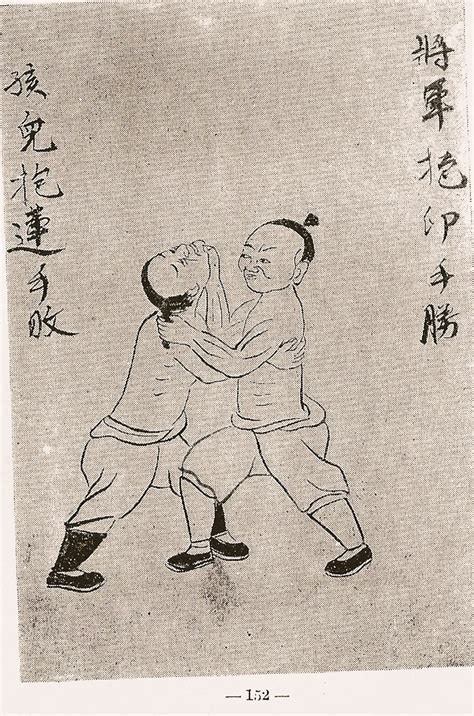 將軍抱印手勝
孩兒抱蓮手敗
— 152 —